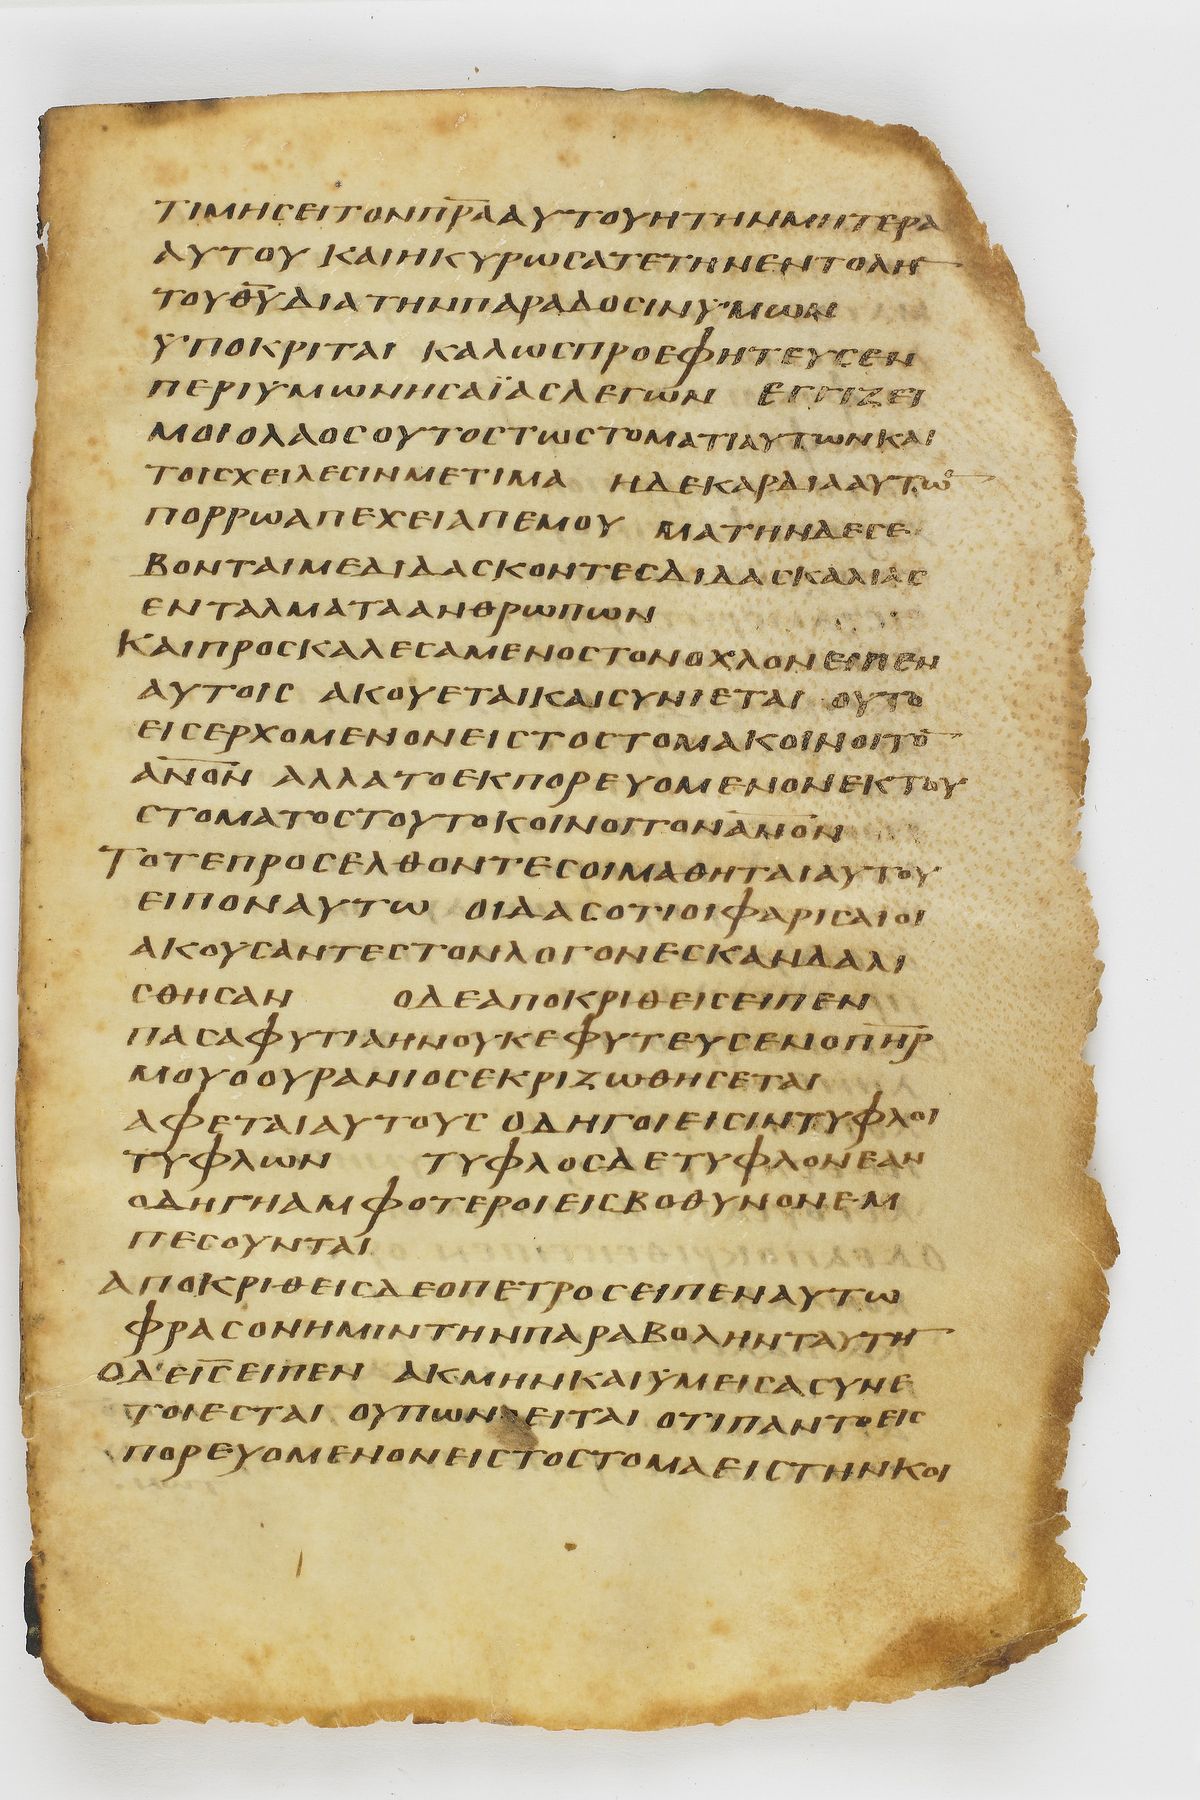 ΤΙΜΗϹΕΙΤΟΝΠ̅Ρ̅Α̅ΑΥΤΟΥΗΤΗΝΜΗΤΕΡΑ
ΑΥΤΟΥ ΚΑΙΗΚΥΡΩϹΑΤΕΤΗΝΕΝΤΟΛΗ̅
ΤΟΥΘ̅Υ̅ΔΙΑΤΗΝΠΑΡΑΔΟϹΙΝΥΜΩΝ
ΥΠΟΚΡΙΤΑΙ ΚΑΛΩϹΠΡΟΕΦΗΤΕΥϹΕΝ
ΠΕΡΙΥΜΩΝΗϹΑΪΑϹΛΕΓΩΝ ΕΓΓΙΖΕΙ
ΜΟΙΟΛΑΟϹΟΥΤΟϹΤΩϹΤΟΜΑΤΙΑΥΤΩΝΚΑΙ
ΤΟΙϹΧΕΙΛΕϹΙΝΜΕΤΙΜΑ ΗΔΕΚΑΡΔΙΑΑΥΤΩ̅
ΠΟΡΡΩΑΠΕΧΕΙΑΠΕΜΟΥ ΜΑΤΗΝΔΕϹΕ
ΒΟΝΤΑΙΜΕΔΙΔΑϹΚΟΝΤΕϹΔΙΔΑϹΚΑΛΙΑϹ
ΕΝΤΑΛΜΑΤΑΑΝΘΡΩΠΩΝ
ΚΑΙΠΡΟϹΚΑΛΕϹΑΜΕΝΟϹΤΟΝΟΧΛΟΝΕΙΠΕΝ
ΑΥΤΟΙϹ ΑΚΟΥΕΤΑΙΚΑΙϹΥΝΙΕΤΑΙ ΟΥΤΟ
ΕΙϹΕΡΧΟΜΕΝΟΝΕΙϹΤΟϹΤΟΜΑΚΟΙΝΟΙΤΟ̅
Α̅Ν̅Ο̅Ν̅ ΑΛΛΑΤΟΕΚΠΟΡΕΥΟΜΕΝΟΝΕΚΤΟΥ
ϹΤΟΜΑΤΟϹΤΟΥΤΟΚΟΙΝΟΙΤΟΝΑ̅Ν̅Ο̅Ν̅
ΤΟΤΕΠΡΟϹΕΛΘΟΝΤΕϹΟΙΜΑΘΗΤΑΙΑΥΤΟΥ
ΕΙΠΟΝΑΥΤΩ ΟΙΔΑϹΟΤΙΟΙΦΑΡΙϹΑΙΟΙ
ΑΚΟΥϹΑΝΤΕϹΤΟΝΛΟΓΟΝΕϹΚΑΝΔΑΛΙ
ϹΘΗϹΑΝ ΟΔΕΑΠΟΚΡΙΘΕΙϹΕΙΠΕΝ
ΠΑϹΑΦΥΤΙΑΗΝΟΥΚΕΦΥΤΕΥϹΕΝΟΠ̅Η̅Ρ̅
ΜΟΥΟΟΥΡΑΝΙΟϹΕΚΡΙΖΩΘΗϹΕΤΑΙ
ΑΦΕΤΑΙΑΥΤΟΥϹ ΟΔΗΓΟΙΕΙϹΙΝΤΥΦΛΟΙ
ΤΥΦΛΩΝ ΤΥΦΛΟϹΔΕΤΥΦΛΟΝΕΑΝ
ΟΔΗΓΗΑΜΦΟΤΕΡΟΙΕΙϹΒΟΘΥΝΟΝΕΜ
ΠΕϹΟΥΝΤΑΙ
ΑΠΟΚΡΙΘΕΙϹΔΕΟΠΕΤΡΟϹΕΙΠΕΝΑΥΤΩ
ΦΡΑϹΟΝΗΜΙΝΤΗΝΠΑΡΑΒΟΛΗΝΤΑΥΤΗ̅
ΟΔΕΙ̅Ϲ̅ΕΙΠΕΝ ΑΚΜΗΝΚΑΙΥΜΕΙϹΑϹΥΝΕ
ΤΟΙΕϹΤΑΙ ΟΥΠΩΝΟΕΙΤΑΙ ΟΤΙΠΑΝΤΟΕΙϹ
ΠΟΡΕΥΟΜΕΝΟΝΕΙϹΤΟϹΤΟΜΑΕΙϹΤΗΝΚΟΙ